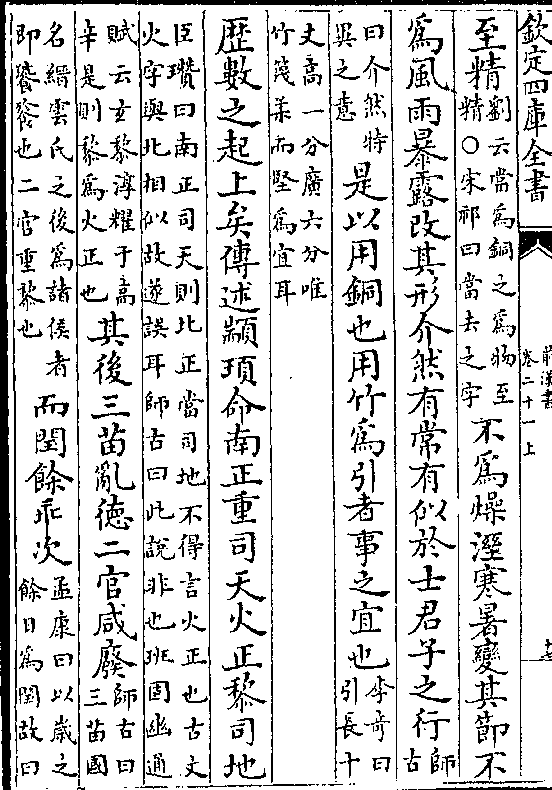 欽定四庫全書
前漢書
卷二十一上
至精
劉云當爲銅之爲物至
精○宋祁曰當去之字
不爲燥溼寒暑變其節不
爲風雨暴露改其形介然有常有似於士君子之行
師
古
曰介然特
異之意
是以用銅也用竹爲引者事之宜也
李奇曰
引長十
丈高一分廣六分唯
竹篾柔而堅爲宜耳
歷數之起上矣傳述顓頊命南正重司天火正黎司地
臣瓚曰南正司天則北正當司地不得言火正也古文
火字與北相似故遂誤耳師古曰此說非也班固幽通
賦云玄黎淳耀于高
辛是則黎爲火正也
其後三苗亂徳二官咸廢
師古曰
三苗國
名縉雲氏之後爲諸侯者
即饕餮也二官重黎也
而閏餘乖次
孟康曰以歳之
餘日爲閏故曰